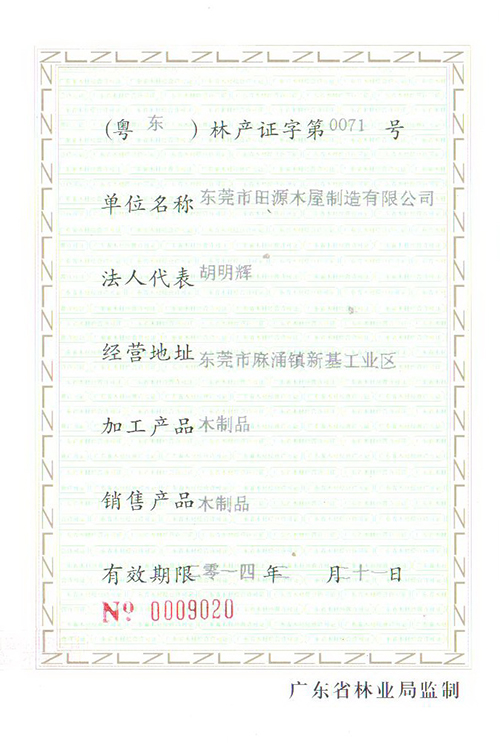 (粤 东 ) 林产证字第0071 号
单位名称 东莞市田源木屋制造有限公司
法人代表 胡明辉
经营地址 东莞市麻涌镇新基工业区
加工产品 木制品
销售产品 木制品
有效期限 二零一四 年 二 月 二十一 日
№ 0009020
广东省林业局监制